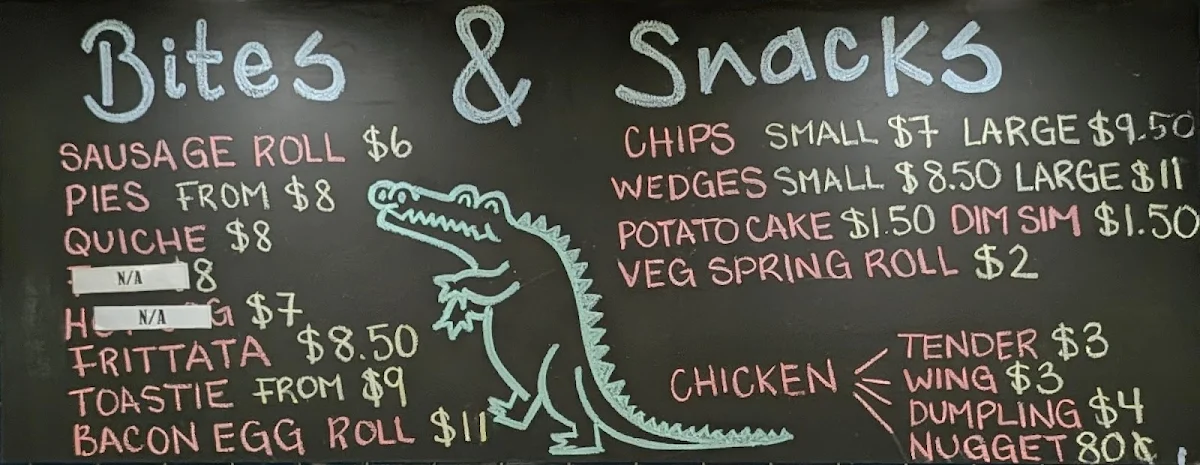 Bites & Snacks
SAUSAGE ROLL $6
PIES FROM $8
QUICHE $8
N/A 8
N/A $7
FRITTATA $8.50
TOASTIE FROM $9
BACON EGG ROLL $11
CHIPS SMALL $7 LARGE $9.50
WEDGES SMALL $8.50 LARGE $11
POTATO CAKE $1.50 DIM SIM $1.50
VEG SPRING ROLL $2
CHICKEN
TENDER $3
WING $3
DUMPLING $4
NUGGET 80¢